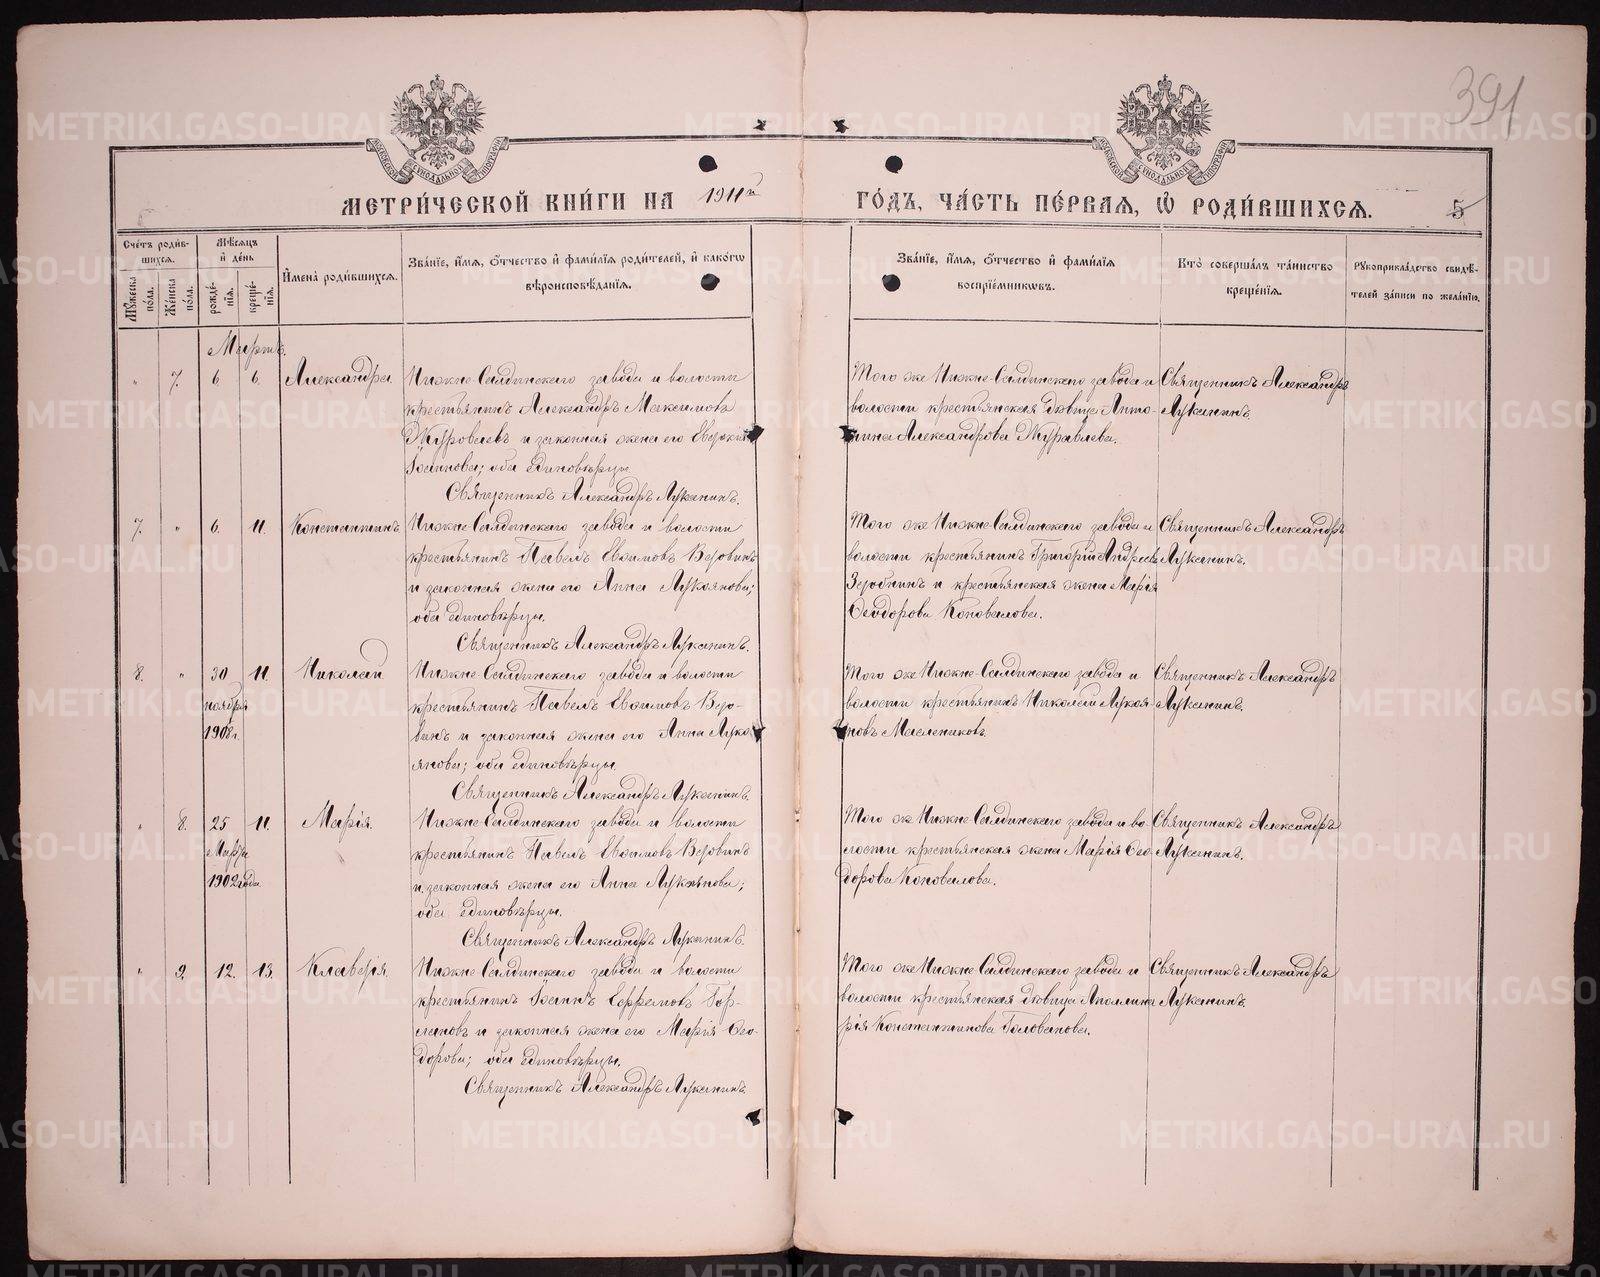 391
МЕТРИ́ЧЕСКОЙ КНИ́ГИ НА 1911й ГО́ДЪ, ЧА́СТЬ ПЕ́РВАЯ, Ѡ РОДИ́ВШИХСЯ. 5
Сче́тъ роди́вшихся.
Му́жеска по́ла.
Же́нска по́ла.
Мѣ́сяцъ и де́нь
рожде́нїя.
креще́нїя.
Имена̀ роди́вшихся.
Зва́нїе, и́мя, о́тчество и фами́лїя роди́телей, и како́гѡ
вѣроисповѣ́данїя.
Зва́нїе, и́мя, о́тчество и фами́лїя
воспрїе́мникѡвъ.
Кто̀ соверша́лъ та́инство
креще́нїя.
Рукоприкла́дство свидѣ́-
телей за́писи по жела́нїю.
Мартъ.
" 7. 6. 6. Александра
Нижне-Салдинскаго завода и волости
крестьянинъ Александръ Максимовъ
Журавлевъ и законная жена его Евдокия
Іоаннова; оба единовѣрцы
Священникъ Александръ Луканинъ.
Того же Нижне-Салдинскаго завода и
волости крестьянская дѣвица Анто-
нина Александрова Журавлева.
Священникъ Александръ
Луканинъ.
7. " 6. 11. Константинъ
Нижне-Салдинскаго завода и волости
крестьянинъ Павелъ Евѳимовъ
и законная жена его Анна Лукоянова;
оба единовѣрцы.
Священникъ Александръ Луканинъ.
Того же Нижне-Салдинскаго завода и
волости крестьянинъ Григорій Андреевъ
Зеробнинъ и крестьянская жена Марія
Ѳеодорова Коновалова.
Священникъ Александръ
Луканинъ.
8. " 30 11. Николай
ноября
1908г.
Нижне-Салдинскаго завода и волости
крестьянинъ Павелъ Евѳимовъ
и законная жена его Анна Луко-
янова; оба единовѣрцы.
Священникъ Александръ Луканинъ.
Того же Нижне-Салдинскаго завода и
волости крестьянинъ Николай Лукоя-
новъ Маслениковъ.
Священникъ Александръ
Луканинъ.
" 8. 25 11. Марія.
Марта
1902 года
Нижне-Салдинскаго завода и волости
крестьянинъ Павелъ Евѳимовъ
и законная жена его Анна Лукоянова;
оба единовѣрцы.
Священникъ Александръ Луканинъ.
Того же Нижне-Салдинскаго завода и во-
лости крестьянская жена Марія Ѳео-
дорова Коновалова.
Священникъ Александръ
Луканинъ.
" 9. 12. 13. Клавдія
Нижне-Салдинскаго завода и волости
крестьянинъ Іоаннъ Ефремовъ Гор-
лановъ и законная жена его Марія Ѳео-
дорова; оба единовѣрцы.
Священникъ Александръ Луканинъ.
Того же Нижне-Салдинскаго завода и
волости крестьянская дѣвица Аполлина-
рія Константинова Голованова.
Священникъ Александръ
Луканинъ.
METRIKI.GASO-URAL.RU